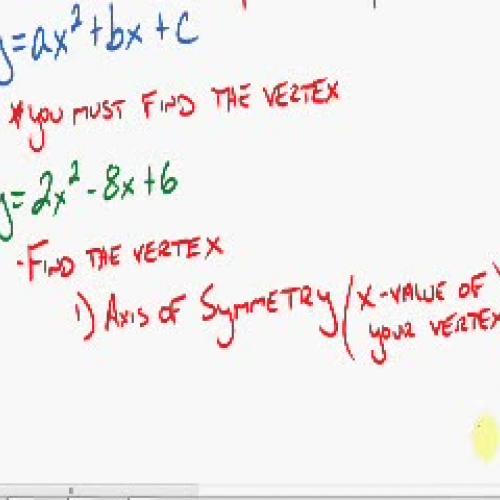 y=ax²+bx+c
*YOU MUST FIND THE VERTEX
y=2x²-8x+6
-FIND THE VERTEX
1) AXIS OF SYMMETRY (X-VALUE OF
YOUR VERTEX